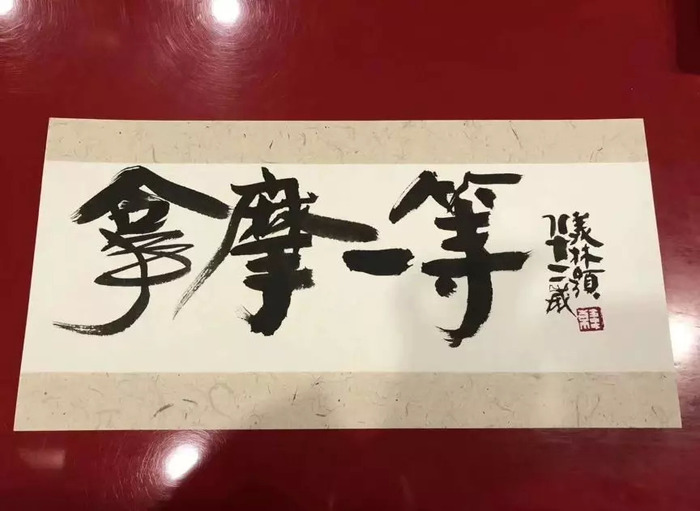 拿摩一等
義林題
八十二歲